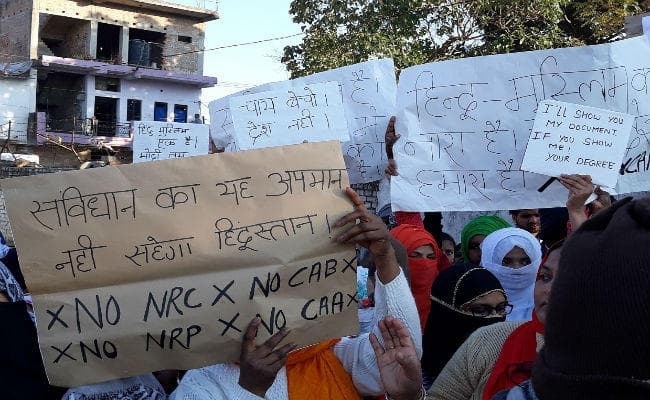 हिन्दू मुस्लिम
एक है।
चाय बेचो।
देश नहीं।
है।
हिन्दू - मुस्लिम
नारा है।
हमारा है।
I'LL SHOW YOU
MY DOCUMENT
IF YOU SHOW
ME!
YOUR DEGREE
संविधान का यह अपमान
नही सहेगा हिंदूस्तान।
× NO NRC × NO CAB ×
× NO NRP × NO CAA ×